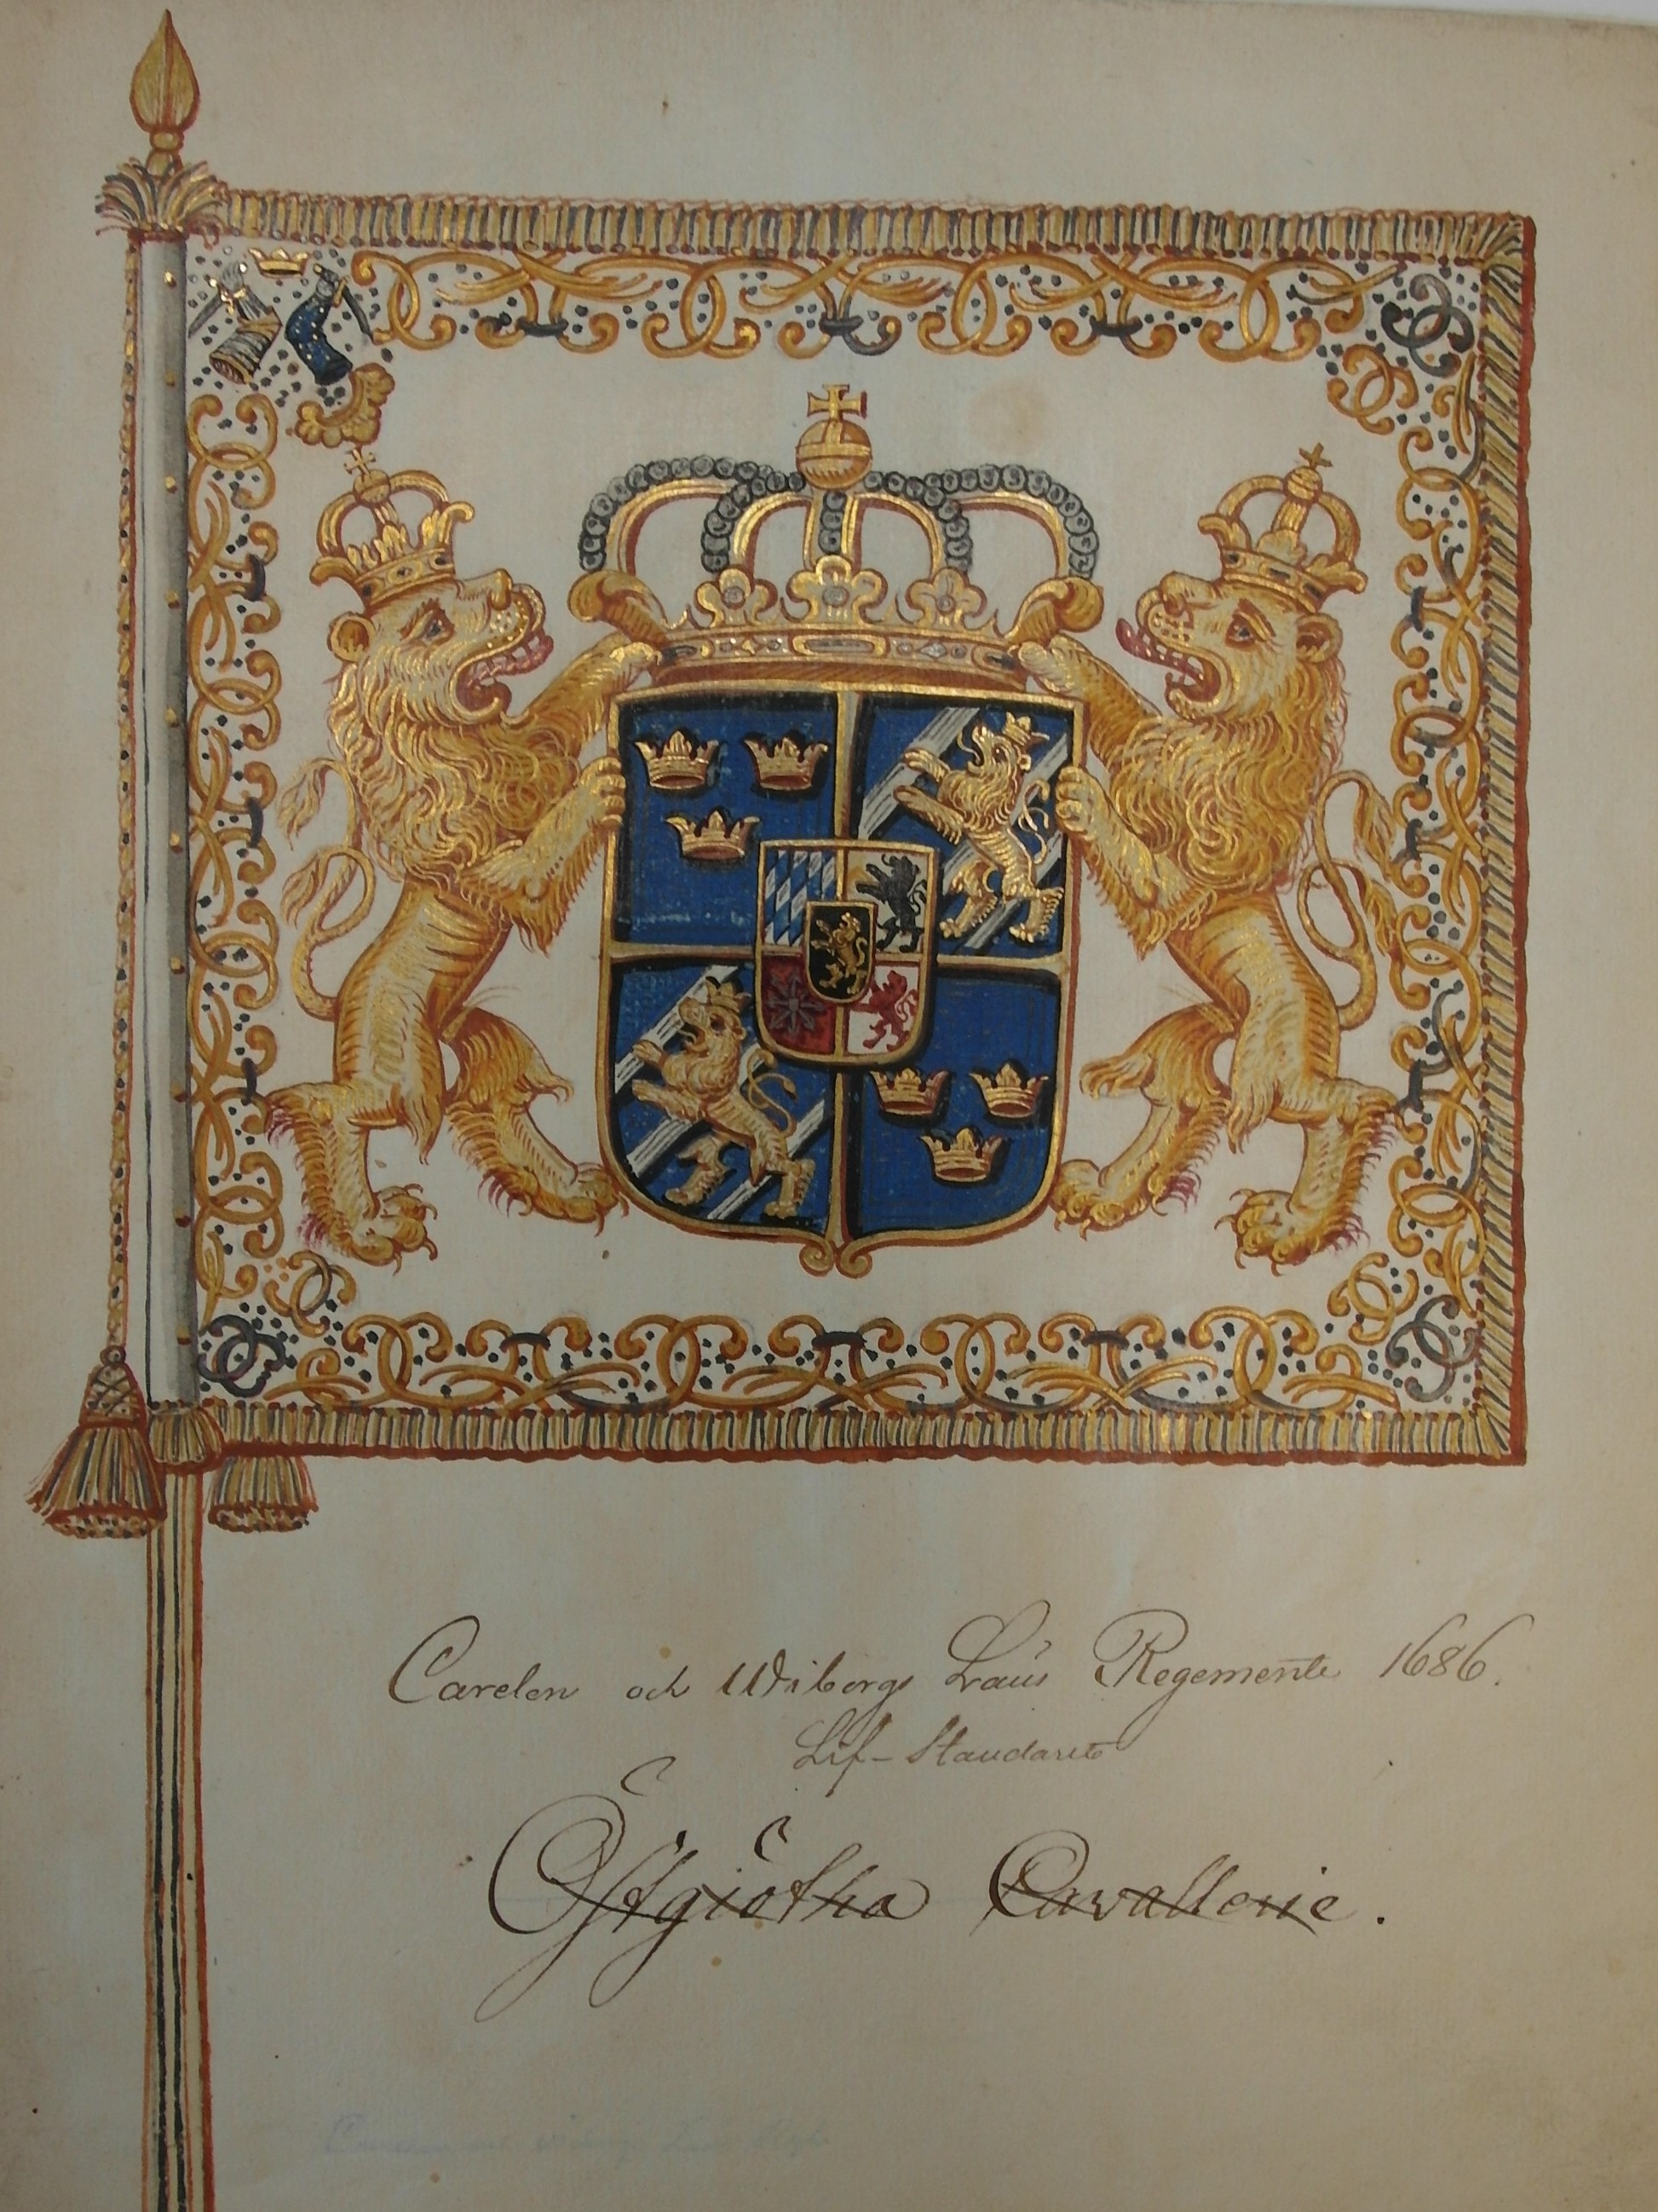 Carelen och Wiborgs Läns Regemente 1686.
Lif-Standarte
Östgiötha Cavallerie.